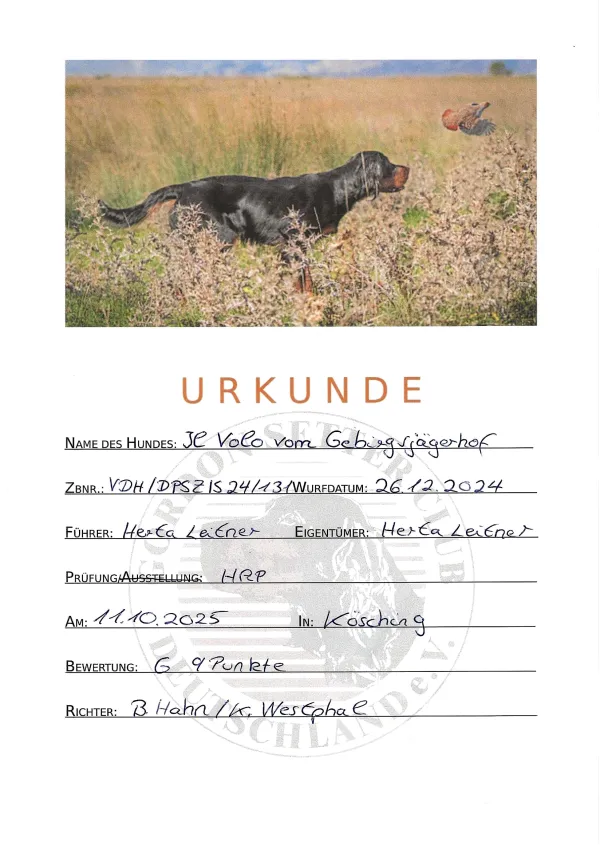 URKUNDE
NAME DES HUNDES: Il Volo vom Gebirgsjägerhof
ZBNR.: VDH/DPSZ IS 24/131 WURFDATUM: 26.12.2024
FÜHRER: Herta Leitner EIGENTÜMER: Herta Leitner
PRÜFUNG/AUSSTELLUNG: HRP
AM: 11.10.2025 IN: Kösching
BEWERTUNG: G 9 Punkte
RICHTER: B. Hahn / K. Westphal
GORDON SETTER CLUB
DEUTSCHLAND e.V.